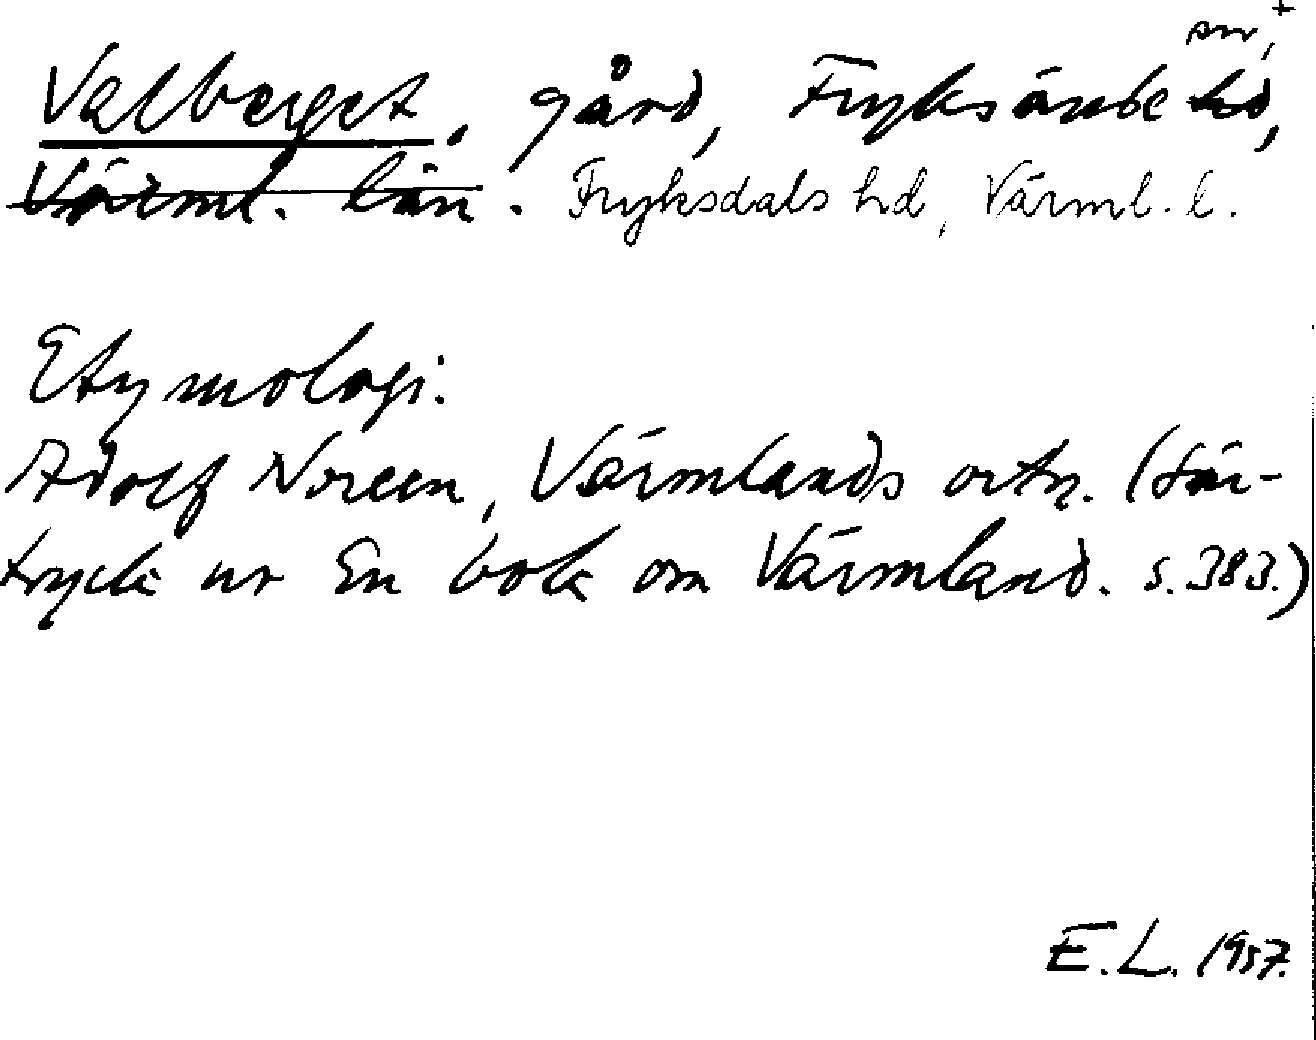 sn, +
Valberget, gård, Fryksände hd,
Värml. län. Fryksdals hd, Värml. l.
Etymologi.
Adolf Noreen, Värmlands ortn. (Sär-
tryck ur En bok om Värmland. s. 383.)
E.L. 1957.